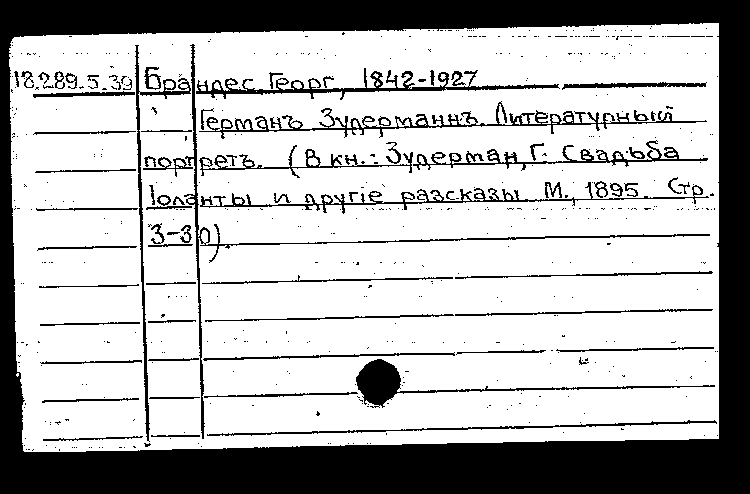 18.289.5.39 Брандес, Георг, 1842-1927
Германъ Зудерманнъ. Литературный
портретъ. (В кн.: Зудерман, Г. Свадьба
Iоланты и другiе разсказы. М., 1895. Стр.
3-30).